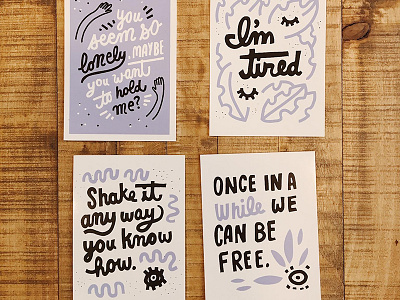 you
seem so
lonely. MAYBE
you want
to hold
me?
I'm
tired
Shake it
any way
you know
how.
ONCE IN A
While WE
CAN BE
FREE.